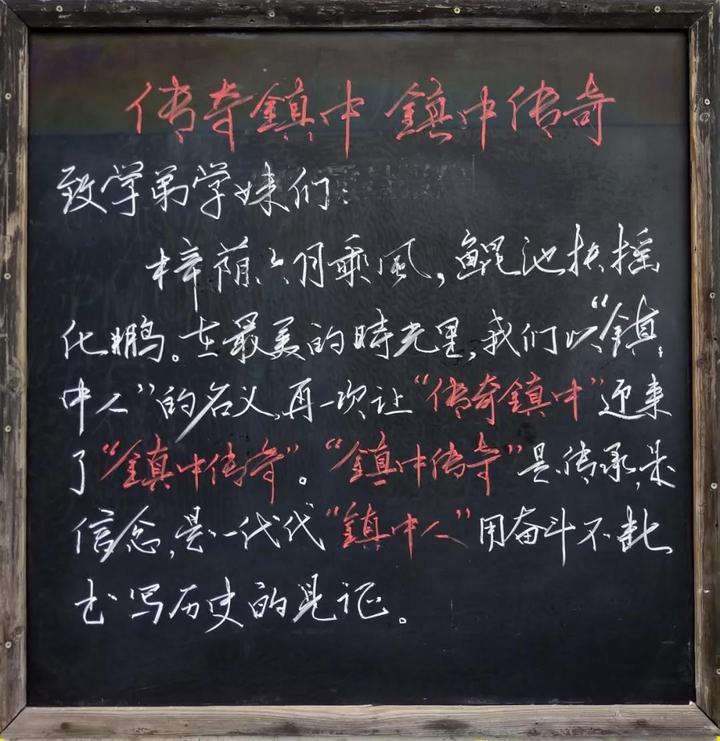 传奇鎮中 鎮中传奇
致学弟学妹们：
梓荫六月乘風，鲲池扶摇
化鹏。在最美的時光里，我们以“鎮
中人”的名义，再一次让“传奇鎮中”迎来
了“鎮中传奇”。“鎮中传奇”是传承，是
信念，是一代代“鎮中人”用奋斗不断
书写历史的见证。